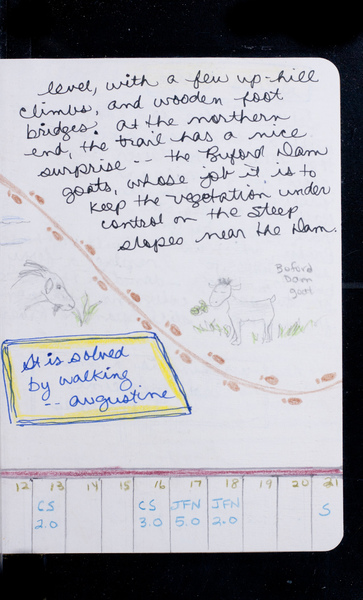 level, with a few up-hill
climbs, and wooden foot
bridges. At the northern
end, the trail has a nice
surprise -- the Buford Dam
goats, whose job it is to
keep the vegetation under
control on the steep
slopes near the Dam.
Buford
Dam
goat
It is solved
by walking
-- augustine
12 13 14 15 16 17 18 19 20 21
CS CS JFN JFN S
2.0 3.0 5.0 2.0